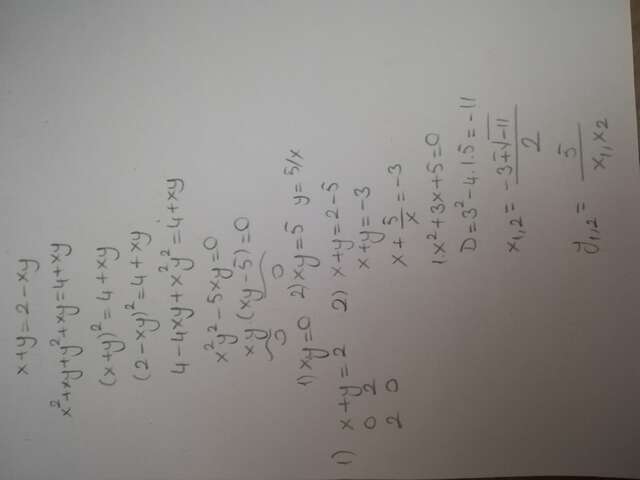 x+y=2-xy
x²+xy+y²+xy=4+xy
(x+y)²=4+xy
(2-xy)²=4+xy
4-4xy+x²y²=4+xy
x²y²-5xy=0
xy(xy-5)=0
0 0
1) xy=0 2) xy=5 y=5/x
1) x+y=2 2) x+y=2-5
0 2 x+y=-3
2 0 x+5/x=-3
1.x²+3x+5=0
D=3²-4.1.5=-11
x1,2=(-3±√-11)/2
y1,2=5/x1,x2